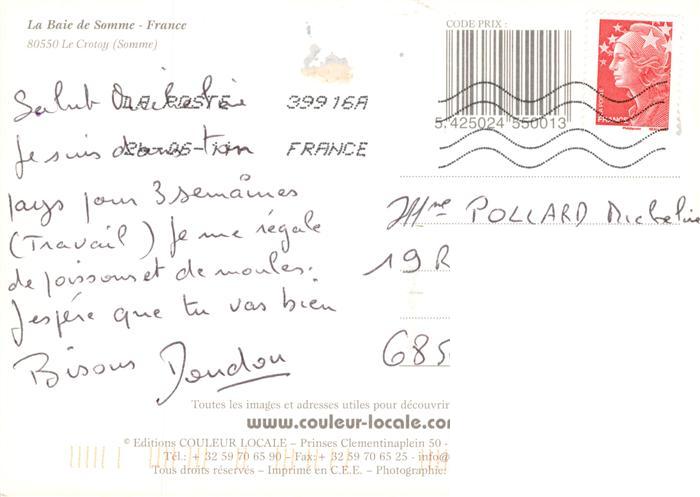 La Baie de Somme - France
80550 Le Crotoy (Somme)
CODE PRIX :
5 425024 550013
FRANCE
LA POSTE 39916A
FRANCE
Salut Micheline
Je suis dans ton
pays pour 3 semaines
(Travail) Je me régale
de poissons et de moules.
J'espère que tu vas bien
Bisous Doudou
Mme POLLARD Micheline
19 R
685
Toutes les images et adresses utiles pour découvrir
www.couleur-locale.com
© Editions COULEUR LOCALE – Prinses Clementinaplein 50 -
Tél.: + 32 59 70 65 90 - Fax: + 32 59 70 64 25 - info@
Tous droits réservés – Imprimé en C.E.E. – Photographie: